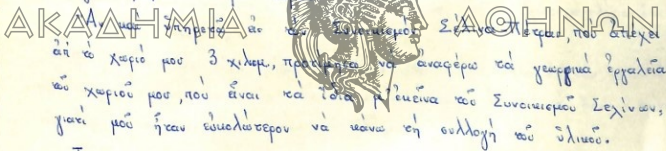 ΑΚΑΔΗΜΙΑ ΑΘΗΝΩΝ
Ἄν καί ὑπηρετῶ εἰς τόν Συνοικισμόν Σέλινα Πέτρας, πού ἀπέχει
ἀπ τό χωριό μου 3 χιλιομ., προτίμησα νά ἀναφέρω τά γεωργικά ἐργαλεῖα
τοῦ χωριοῦ μου, πού εἶναι τά ἴδια μ' ἐκεῖνα τοῦ Συνοικισμοῦ Σελίνων,
γιατί μοῦ ἦταν εὐκολώτερον νά κάνω τή συλλογή τοῦ ὑλικοῦ.